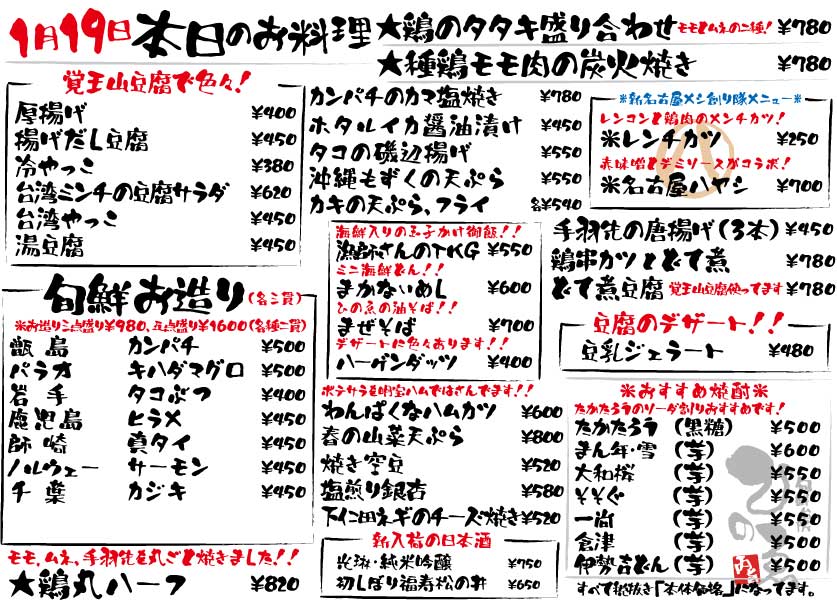 1月19日 本日のお料理
★鶏のタタキ盛り合わせ モモとムネの二種! ¥780
★種鶏モモ肉の炭火焼き ¥780
覚王山豆腐で色々!
厚揚げ ¥400
揚げだし豆腐 ¥450
冷やっこ ¥380
台湾ミンチの豆腐サラダ ¥620
台湾やっこ ¥450
湯豆腐 ¥450
旬鮮お造り(各三貫)
※お造り三点盛り¥980、五点盛り¥1600(各種二貫)
甑島 カンパチ ¥500
パラオ キハダマグロ ¥500
岩手 タコぶつ ¥400
鹿児島 ヒラメ ¥450
師崎 真タイ ¥450
ノルウェー サーモン ¥450
千葉 カジキ ¥450
モモ、ムネ、手羽先を丸ごと焼きました!!
★鶏丸ハーフ ¥820
カンパチのカマ塩焼き ¥780
ホタルイカ醤油漬け ¥450
タコの磯辺揚げ ¥550
沖縄もずくの天ぷら ¥550
カキの天ぷら、フライ 各¥540
海鮮入りの玉子かけ御飯!!
漁師さんのTKG ¥550
ミニ海鮮どん!!
まかないめし ¥600
ひのゑの油そば!!
まぜそば ¥700
デザートに色々あります!!
ハーゲンダッツ ¥400
ポテサラを明宝ハムではさんでます!!
わんぱくなハムカツ ¥600
春の山菜天ぷら ¥800
焼き空豆 ¥520
塩煎り銀杏 ¥580
下仁田ネギのチーズ焼き ¥520
新入荷の日本酒
光栄・純米吟醸 ¥750
初しぼり福寿松の井 ¥650
※新名古屋メシ創り隊メニュー※
レンコンと鶏肉のメンチカツ!
米レンチカツ ¥250
赤味噌とデミソースがコラボ!
米名古屋ハヤシ ¥700
手羽先の唐揚げ(3本) ¥450
鶏串カツとどて煮 ¥780
どて煮豆腐 覚王山豆腐使ってます ¥780
豆腐のデザート!!
豆乳ジェラート ¥480
※おすすめ焼酎※
たかたろうのソーダ割りおすすめです!
たかたろう (黒糖) ¥500
まん年・雪 (芋) ¥600
大和桜 (芋) ¥550
そそぐ (芋) ¥550
一尚 (芋) ¥550
倉津 (芋) ¥550
伊勢吉どん (芋) ¥500
すべて税抜き「本体価格」になってます。